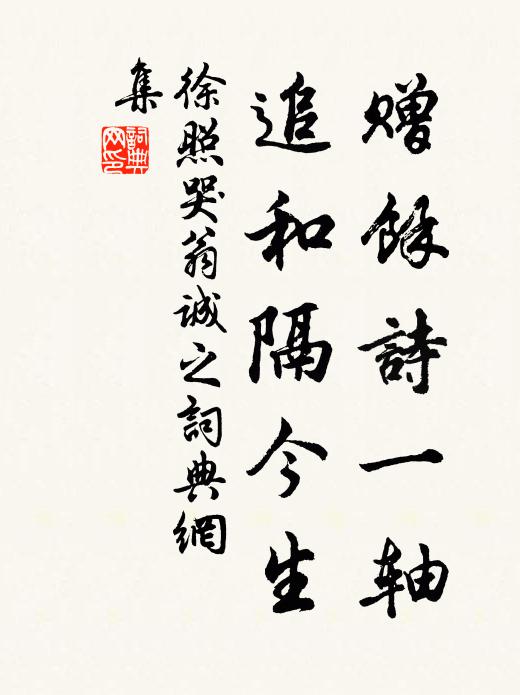 贈餘詩一軸
追和隔今生
徐照哭翁誠之詞典網
集
詞典網印